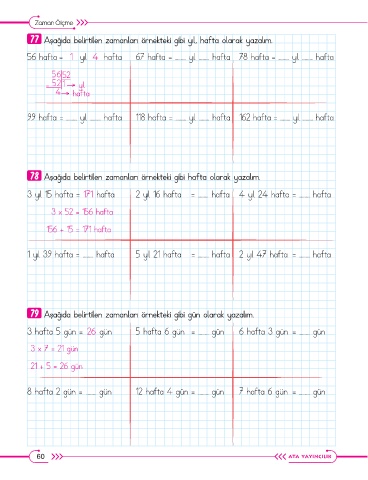 Zaman Ölçme
77 Aşağıda belirtilen zamanları örnekteki gibi yıl, hafta olarak yazalım.
56 hafta = 1 yıl 4 hafta 67 hafta = ___ yıl ___ hafta 78 hafta = ___ yıl ___ hafta
56 52
- 52 1 → yıl
4 → hafta
99 hafta = ___ yıl ___ hafta 118 hafta = ___ yıl ___ hafta 162 hafta = ___ yıl ___ hafta
78 Aşağıda belirtilen zamanları örnekteki gibi hafta olarak yazalım.
3 yıl 15 hafta = 171 hafta 2 yıl 16 hafta = ___ hafta 4 yıl 24 hafta = ___ hafta
3 x 52 = 156 hafta
156 + 15 = 171 hafta
1 yıl 39 hafta = ___ hafta 5 yıl 21 hafta = ___ hafta 2 yıl 47 hafta = ___ hafta
79 Aşağıda belirtilen zamanları örnekteki gibi gün olarak yazalım.
3 hafta 5 gün = 26 gün 5 hafta 6 gün = ___ gün 6 hafta 3 gün = ___ gün
3 x 7 = 21 gün
21 + 5 = 26 gün
8 hafta 2 gün = ___ gün 12 hafta 4 gün = ___ gün 7 hafta 6 gün = ___ gün
60
ATA YAYINCILIK